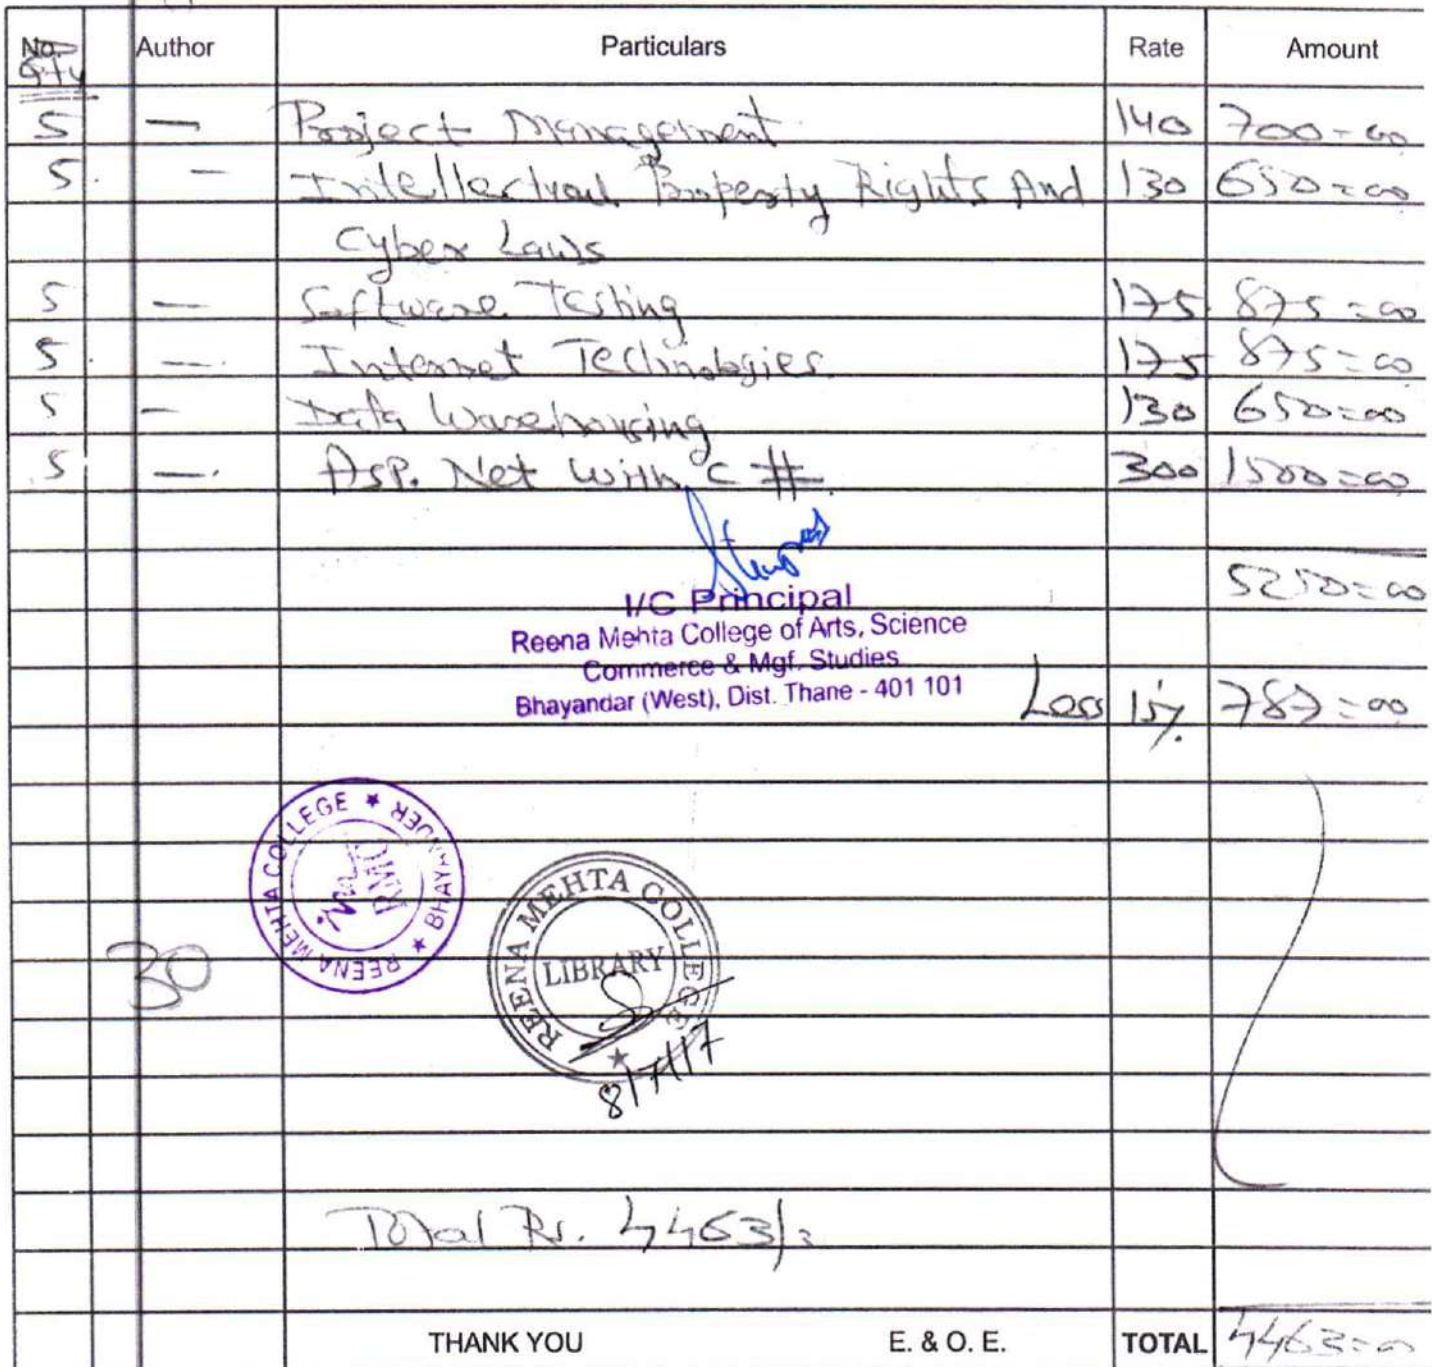 No. Author Particulars Rate Amount
Qty
5 — Project Management 140 700=00
5. — Intellectual Property Rights And 130 650=00
Cyber Laws
5 — Software Testing 175 875=00
5. — Internet Technologies. 175 875=00
5 — Data Warehousing 130 650=00
5 — Asp. Net With C #. 300 1500=00
5250=00
I/C Principal
Reena Mehta College of Arts, Science
Commerce & Mgf. Studies
Bhayandar (West), Dist. Thane - 401 101
Less 15%. 787=00
REENA MEHTA COLLEGE ★ BHAYANDER ★
RMC
30
REENA MEHTA COLLEGE
LIBRARY
8/7/17
Total Rs. 4463/=
THANK YOU E. & O. E. TOTAL 4463=00